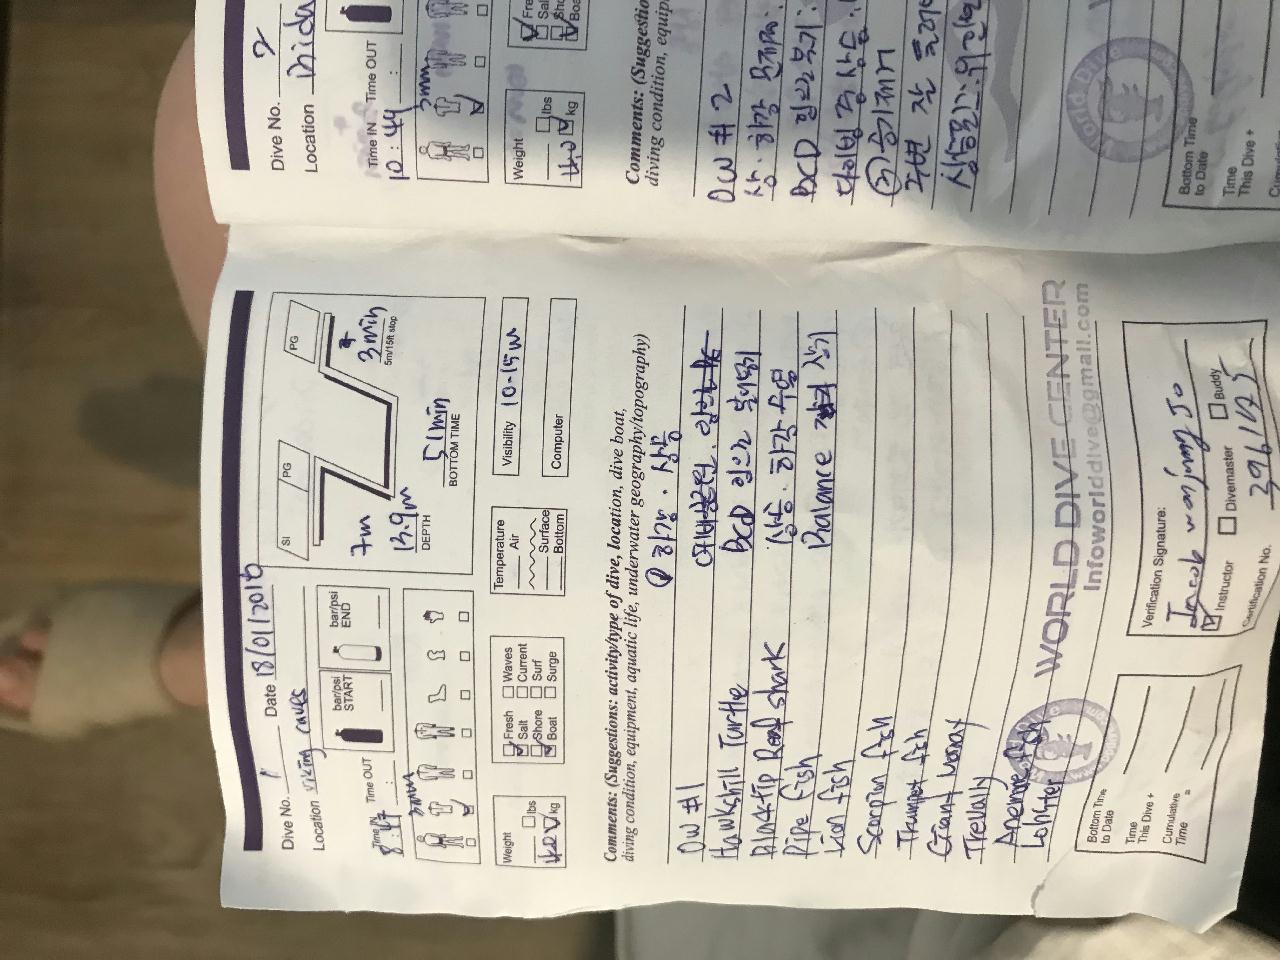 Dive No. 1 Date 18/01/2018
Location viking caves
SI PG PG
7m
13.9m
DEPTH
51min
BOTTOM TIME
3min
5m/15ft stop
Time IN 8:47 Time OUT :
bar/psi START
bar/psi END
3mm
Weight
lbs
kg
Fresh Waves
Salt Current
Shore Surf
Boat Surge
Temperature
Air
Surface
Bottom
Visibility 10-15m
Computer
Comments: (Suggestions: activity/type of dive, location, dive boat,
diving condition, equipment, aquatic life, underwater geography/topography)
① 하강 · 상승
OW #1
Hawksbill Turtle
Black-tip Reef shark BCD 입으로 불어넣기
Pipe fish 상승·하강 수영
Lion fish Balance 잡기
Scorpion fish
Trumpet fish
Giant Moray
Trevally
Anemone fish
Lobster
WORLD DIVE CENTER
Infoworlddive@gmail.com
Bottom Time to Date
Time This Dive +
Cumulative Time =
Verification Signature:
Jacob wonjung Jo
Instructor Divemaster Buddy
Certification No. 396125
Dive No. 2
Location bida
Time IN 10:44 Time OUT :
3mm
Weight
lbs
kg
Comments: (Suggestio
diving condition, equip
OW #2
BCD 입으로 불기
Bottom Time to Date
Time This Dive +